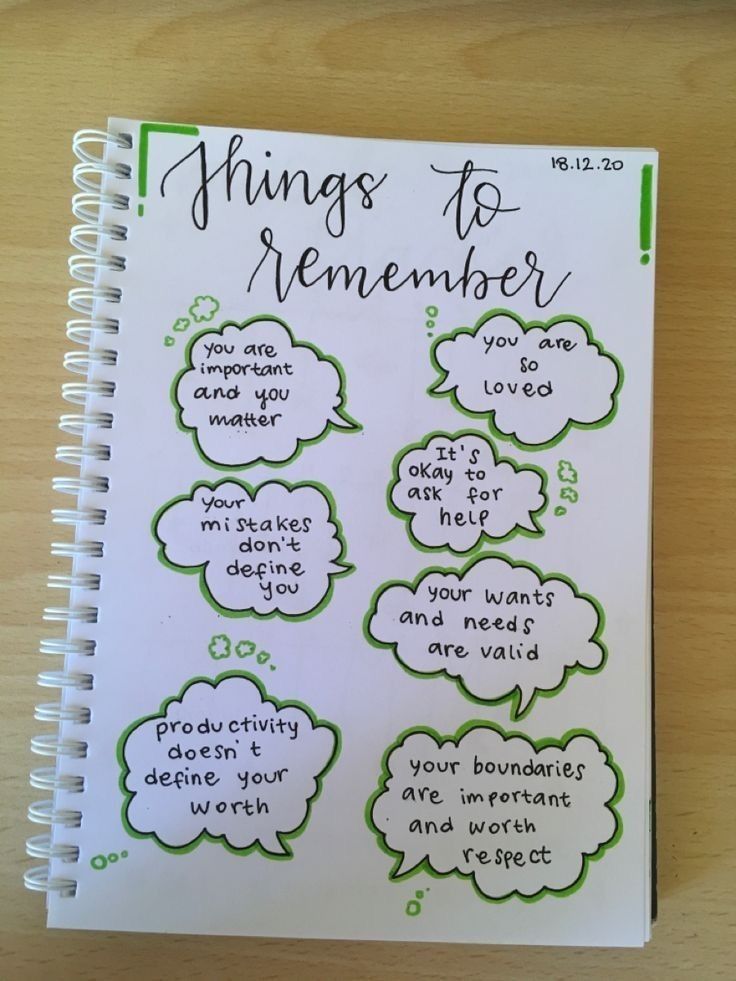 18.12.20
things to
remember
you are
important
and you
matter
you are
so
loved
It's
okay to
ask for
help
your
mistakes
don't
define
you
your wants
and needs
are valid
productivity
doesn't
define your
worth
your boundaries
are important
and worth
respect